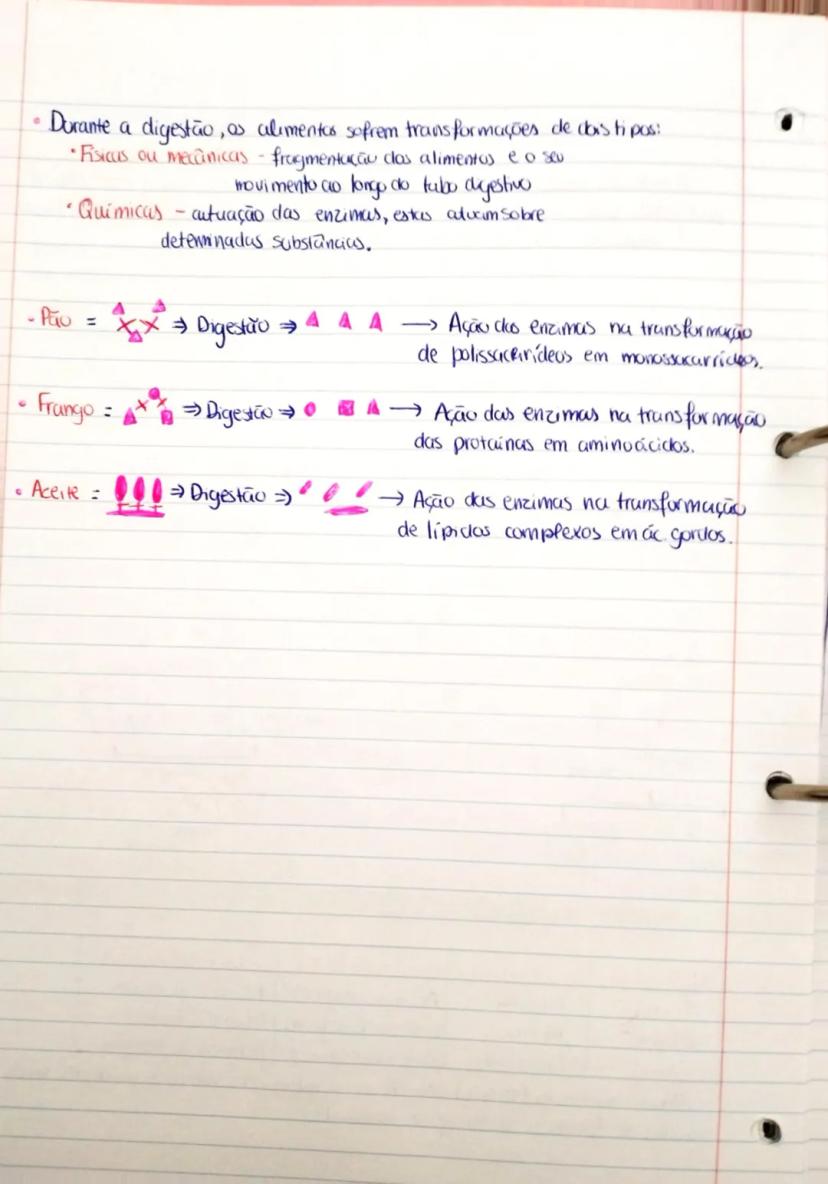 • Durante a digestão, os alimentos sofrem transformações de dois tipos:
• Físicas ou mecânicas - fragmentação dos alimentos e o seu
movimento ao longo do tubo digestivo
• Químicas - autuação das enzimas, estas atuam sobre
determinadas substâncias.
• Pão = ⇒ Digestão ⇒ → Ação das enzimas na transformação
de polissacarídeos em monossacarrídeos.
• Frango = ⇒ Digestão ⇒ → Ação das enzimas na transformação
das protaínas em aminoácidos.
• Aceite = ⇒ Digestão ⇒ → Ação das enzimas na transformação
de lípidos complexos em ác. gordos.